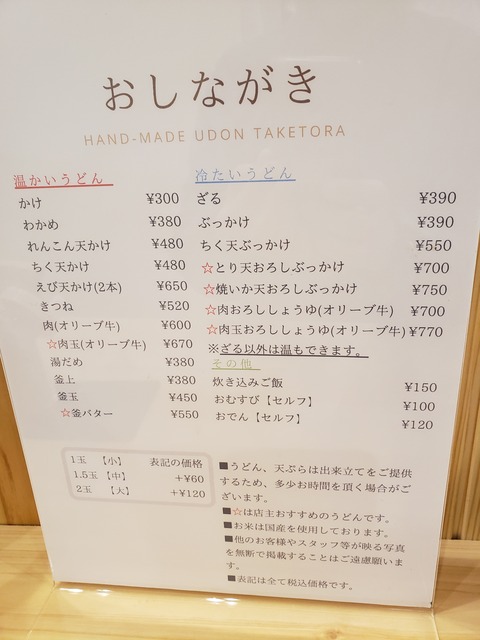 おしながき
HAND-MADE UDON TAKETORA
温かいうどん
かけ ¥300
わかめ ¥380
れんこん天かけ ¥480
ちく天かけ ¥480
えび天かけ(2本) ¥650
きつね ¥520
肉(オリーブ牛) ¥600
☆肉玉(オリーブ牛) ¥670
湯だめ ¥380
釜上 ¥380
釜玉 ¥450
☆釜バター ¥550
1玉 【小】 表記の価格
1.5玉【中】 +¥60
2玉 【大】 +¥120
冷たいうどん
ざる ¥390
ぶっかけ ¥390
ちく天ぶっかけ ¥550
☆とり天おろしぶっかけ ¥700
☆焼いか天おろしぶっかけ ¥750
☆肉おろししょうゆ(オリーブ牛) ¥700
☆肉玉おろししょうゆ(オリーブ牛) ¥770
※ざる以外は温もできます。
その他
炊き込みご飯 ¥150
おむすび【セルフ】 ¥100
おでん【セルフ】 ¥120
■うどん、天ぷらは出来立てをご提供
するため、多少お時間を頂く場合がご
ざいます。
■☆は店主おすすめのうどんです。
■お米は国産を使用しております。
■他のお客様やスタッフ等が映る写真
を無断で掲載することはご遠慮願いま
す。
■表記は全て税込価格です。